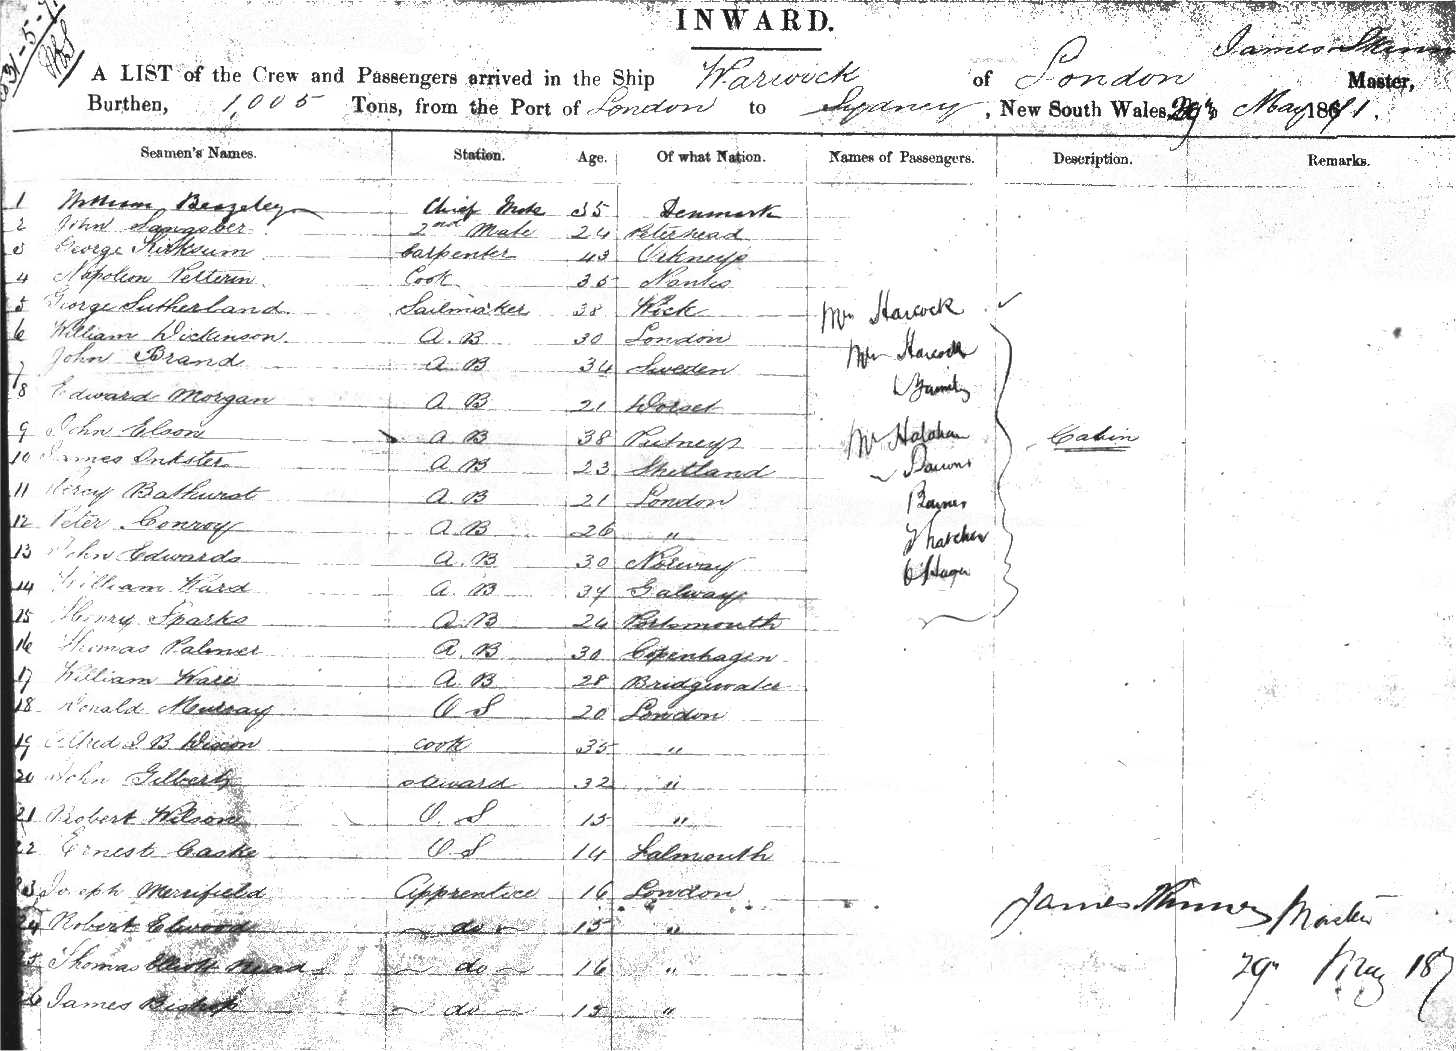 31-5-7
INWARD.
James Skinner
A LIST of the Crew and Passengers arrived in the Ship Warwick of London Master,
Burthen, 1,005 Tons, from the Port of London to Sydney, New South Wales, 29th May 1871.
Seamen's Names. Station. Age. Of what Nation. Names of Passengers. Description. Remarks.
1 William Beazeley Chief Mate 35 Denmark
2 John 2nd Mate 24 Peterhead
3 George Kirksum Carpenter 43 Orkneys
4 Napoleon Cook 35 Nantes
5 George Sutherland Sailmaker 38 Wick
Mr Harcock
6 William Dickinson A.B 30 London
7 John Brand A B 34 Sweden
Mrs Harcock
& Family
8 Edward Morgan A B 21 Dorset
9 John Elson A B 38 Putney
Mr Halahan Cabin
10 James Inkster A B 23 Shetland
11 Percy Bathurst A.B 21 London
Barnes
12 Peter Conroy A.B 26 "
Thatcher
13 John Edwards A.B 30 Norway
O'Hagan
14 William Ward A.B 37 Galway
15 Henry Sparks A.B 24 Portsmouth
16 Thomas Palmer A.B 30 Copenhagen
17 William Ware A B 28 Bridgewater
18 Ronald Murray O S 20 London
19 Alfred J B Dixon cook 35 "
20 John Gilbert steward 32 "
21 Robert Wilson O. S 15 "
22 Ernest Caske O S 14 Falmouth
23 Joseph Merrifield Apprentice 16 London
24 Robert Elwood do 15 "
James Skinner Master
25 Thomas Elliott Mead do 16 "
29th May 187
26 James Bishop do 15 "